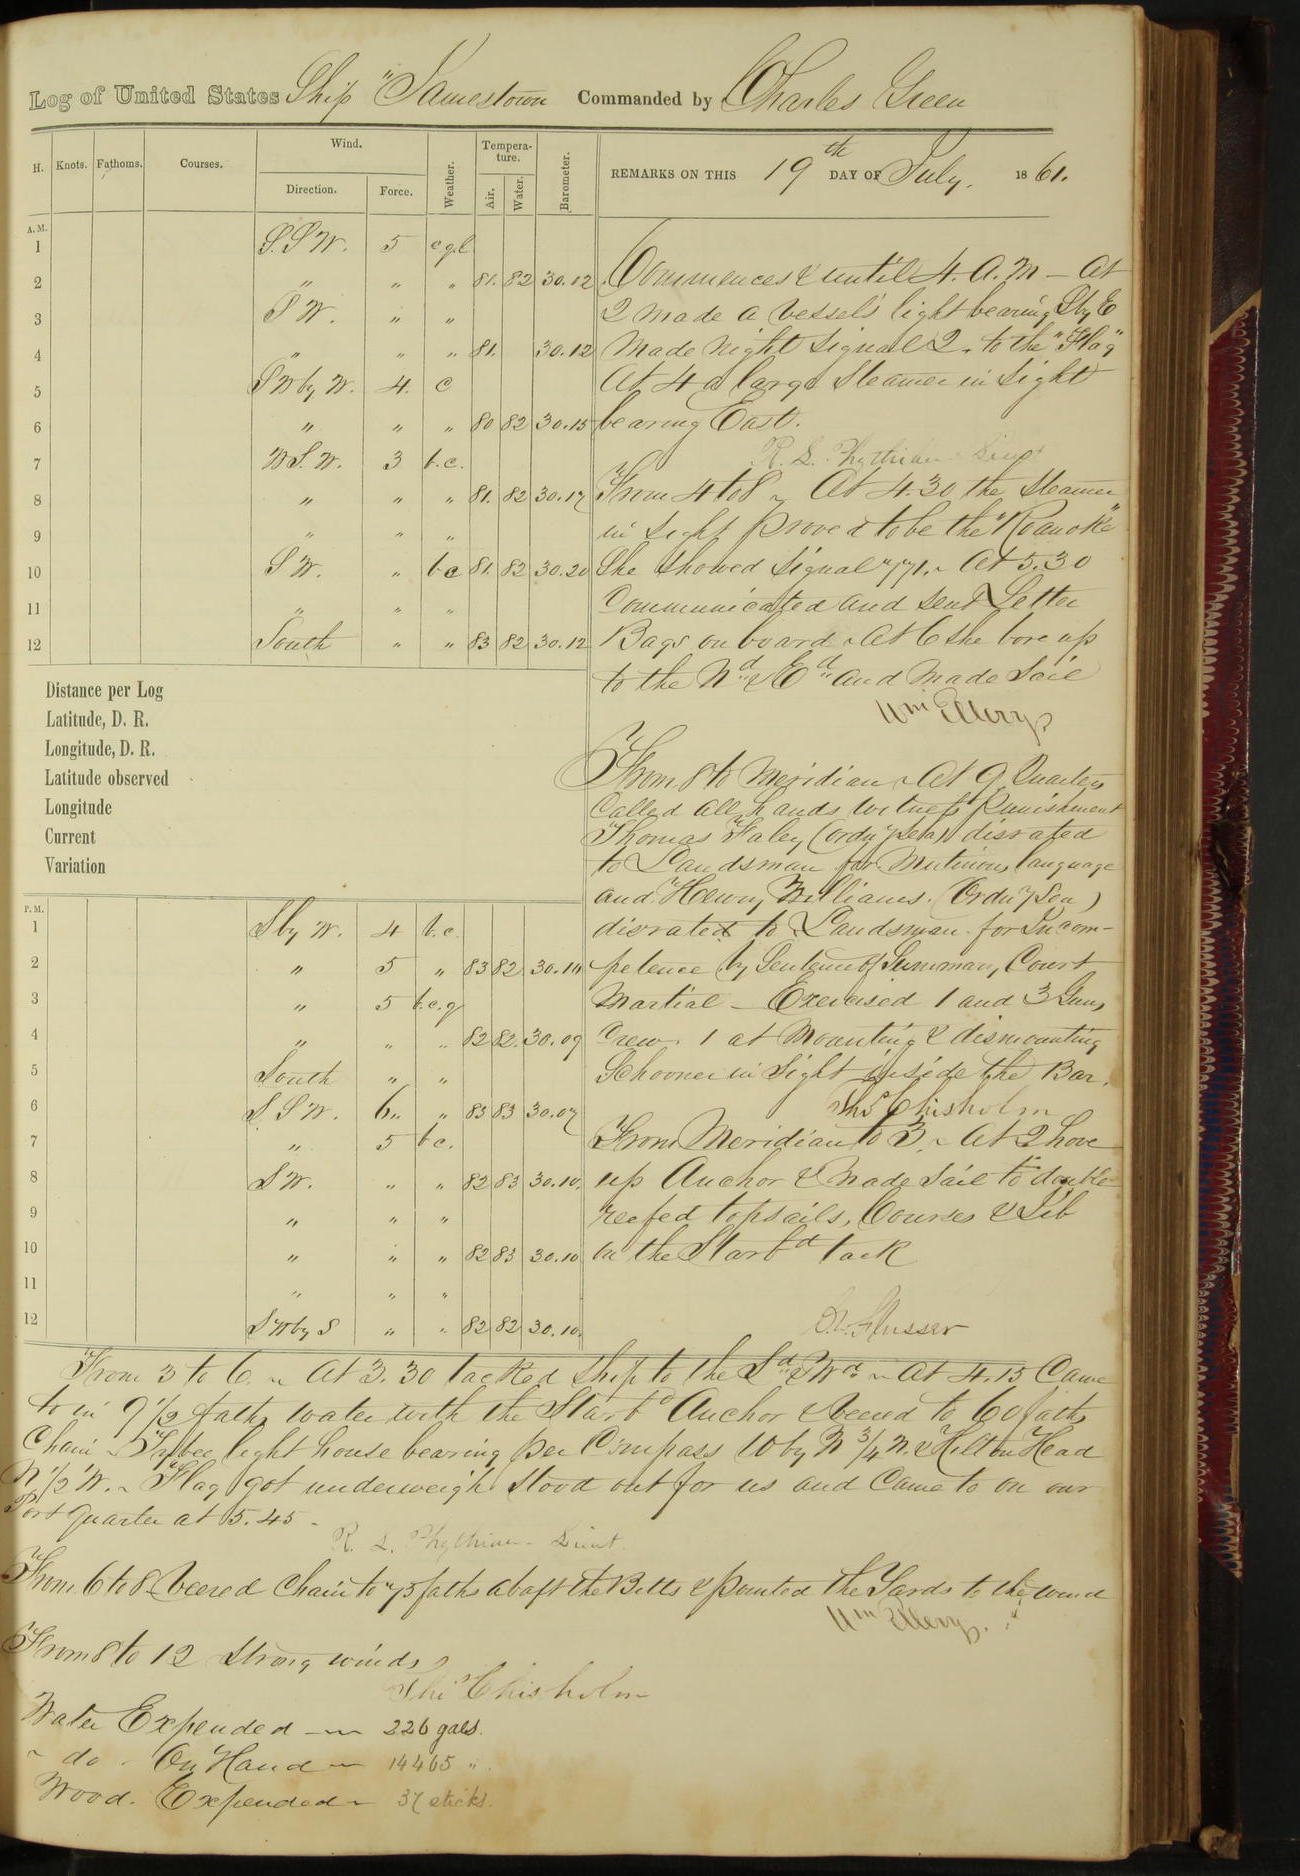 Log of United States Ship "Jamestown Commanded by Charles Green
H. Knots. Fathoms. Courses. Wind. Direction. Force. Weather. Temperature. Air. Water. Barometer. REMARKS ON THIS 19th DAY OF July, 1861.
A.M.
1 S.S W. 5 c.q.l
2 " " " 81. 82 30.12
3 S W. " "
4 " " " 81. 30.12
5 S W by W. 4. c
6 " " " 80 82 30.15
7 W S. W. 3 b.c.
8 " " " 81. 82 30.17
9 " " "
10 S W. " b c 81. 82 30.20
11 " " "
12 South " " 83 82 30.12
Commences & until 4. A. M — At
2 made a vessels light bearing S by E
Made Night Signal 2. to the "Flag"
At 4 a large Steamer in Sight
bearing East.
R. L. Phythian Lieut
From 4 to 8 ~ At 4.30 the Steamer
in sight proved to be the "Roanoke"
She showed Signal 771. ~ At 5.30
Communicated and sent Letter
Bags on board ~ At 6 she bore up
to the Nd & Ed and made Sail
Wm Ellery
Distance per Log
Latitude, D. R.
Longitude, D. R.
Latitude observed
Longitude
Current
Variation
From 8 to Meridian ~ At 9 Quarters
Called all hands witness Punishment
Thomas Faley (Ordy Sea) disrated
to Landsman for Mutinous language
and Henry Williams. (Ordy Sea)
disrated to Landsman for Incom-
petence by Sentence of Summary Court
Martial — Exercised 1 and 3 Guns
Crew. 1 at Mounting & dismounting
Schooner in Sight inside the Bar.
Thos Chisholm
P.M.
1 S by W. 4 b.c.
2 " 5 " 83 82 30.10
3 " 5 b.c.q
4 " " " 82 82. 30.09
5 South " "
6 S S W. 6 " 83 83 30.07
7 " 5 b c.
8 S W. " " 82 83 30.10.
9 " " "
10 " " " 82 83 30.10
11 " " "
12 S W by S " " 82 82 30.10.
From Meridian to 3. ~ At 2 hove
up Anchor & Made Sail to double
reefed topsails, Courses & Jib
on the Starbd tack
C. W. Flusser
From 3 to 6. ~ At 3.30 tacked ship to the Sd & Wd ~ At 4.15 Came
to in 9 1/2 faths water with the Starbd Anchor & veered to 60 faths
Chain — Tybee light house bearing per Compass W by N 3/4 N. & Hilton Head
N 1/2 W. ~ Flag got underweigh stood out for us and Came to on our
Port quarter at 5.45 -
R. L. Phythian - Lieut.
From 6 to 8 Veered Chain to 75 faths abaft the Bitts & pointed the Yards to the wind
Wm Ellery.
From 8 to 12 Strong winds
Thos Chisholm
Water Expended — 226 gals.
" do . On Hand — 14465 "
Wood. Expended ~ 37 sticks.